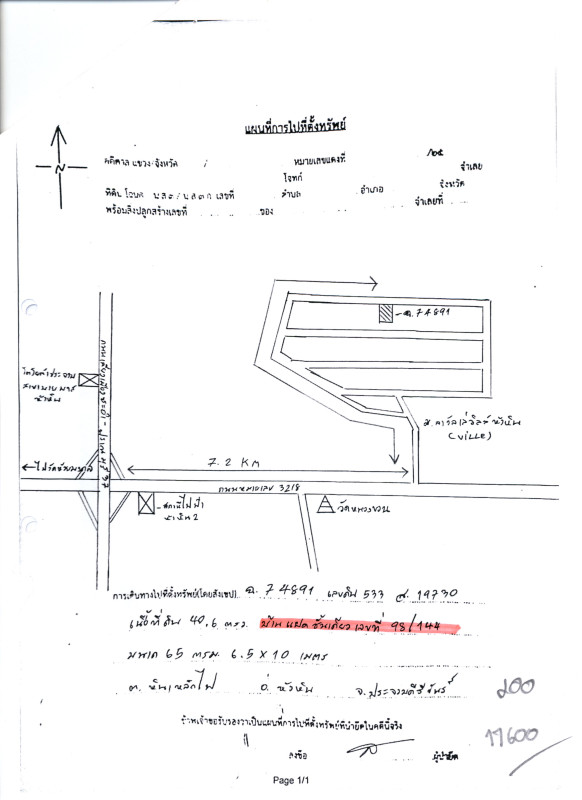 แผนที่การไปที่ตั้งทรัพย์
คดีศาล แขวง/จังหวัด หมายเลขแดงที่ /๒๕
โจทก์ จำเลย
ที่ดิน โฉนด น.ส.๓/น.ส.๓ ก. เลขที่ ตำบล อำเภอ จังหวัด
พร้อมสิ่งปลูกสร้างเลขที่ ของ จำเลยที่
N
ฉ. 74891
หัวหิน
(VILLE)
7.2 KM
ถนนหมายเลข 3218
สถานีไฟฟ้า
หัวหิน 2
วัดหนองขอน
การเดินทางไปที่ตั้งทรัพย์(โดยสังเขป) ฉ. 74891 เลขดิน 533 ส. 19730
เนื้อที่ดิน 40.6 ตรว. บ้านแฝดชั้นเดียว เลขที่ 98/144
ขนาด 65 ตรม. 6.5 X 10 เมตร
ต. หินเหล็กไฟ อ. หัวหิน จ. ประจวบคีรีขันธ์
200
ข้าพเจ้าขอรับรองว่าเป็นแผนที่การไปที่ตั้งทรัพย์ที่นำยึดในคดีนี้จริง
17600
ลงชื่อ ผู้นำยึด
Page 1/1